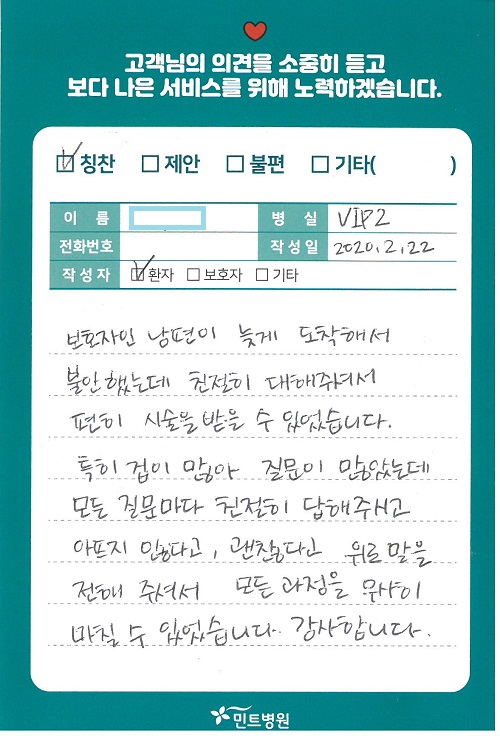 고객님의 의견을 소중히 듣고
보다 나은 서비스를 위해 노력하겠습니다.
칭찬 제안 불편 기타( )
이 름 병 실 VIP2
전화번호 작성일 2020.2.22
작성자 환자 보호자 기타
보호자인 남편이 늦게 도착해서
불안했는데 친절히 대해주셔서
편히 시술을 받을 수 있었습니다.
특히 겁이 많아 질문이 많았는데
모든 질문마다 친절히 답해주시고
아프지 않다고, 괜찮다고 위로 말을
전해 주셔서 모든 과정을 무사히
마칠 수 있었습니다. 감사합니다.
민트병원